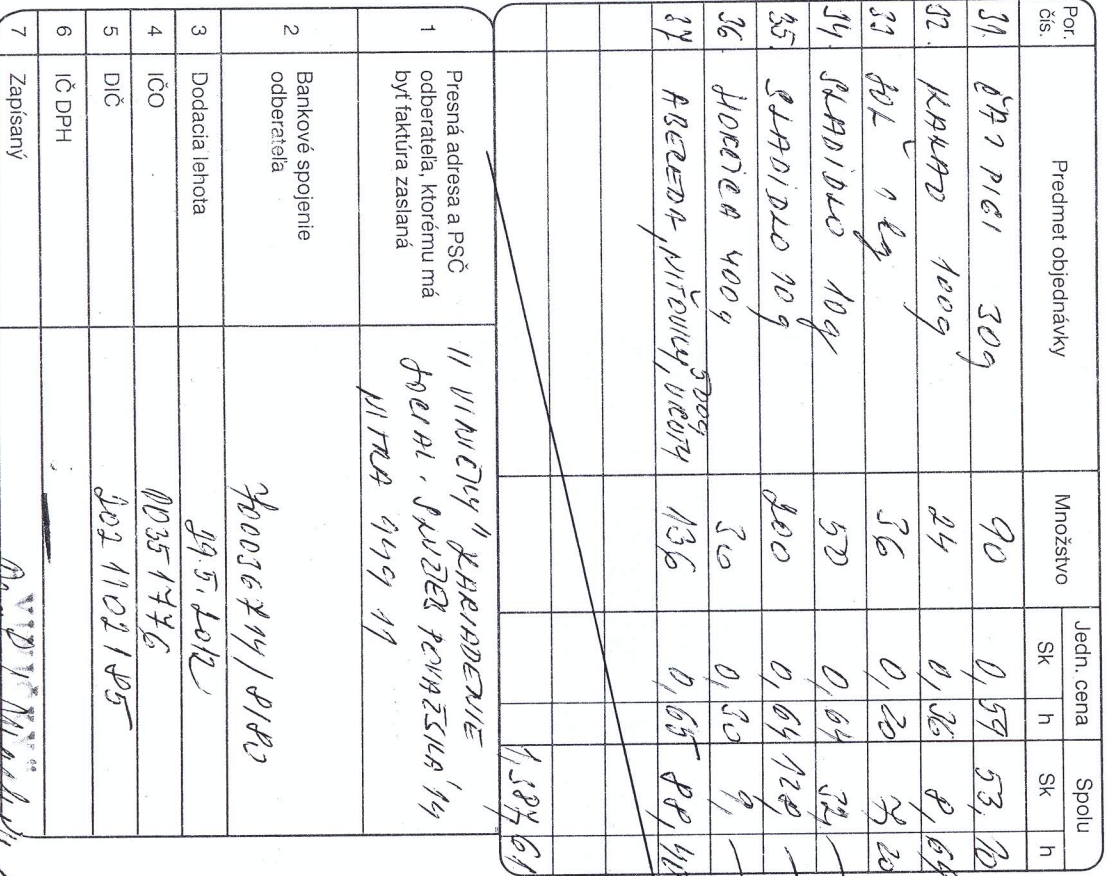 Por. čís. Predmet objednávky Množstvo Jedn. cena Spolu
Sk h Sk h
31. ČAJ PIGI 30g 90 0,59 53,10
32. KAKAO 100g 24 0,36 8,64
33 SOĽ 1 kg 36 0,20 7,20
34. SLADIDLO 10g 50 0,64 32,-
35. SLADIDLO 10g 200 0,64 128,-
36. HORČICA 400g 30 0,30 9,-
37 ABECEDA, NIŤOVKY, VRÚTY 500g 136 0,65 88,40
1,387,61
1 Presná adresa a PSČ
odberateľa, ktorému má
byť faktúra zaslaná
"VINIČKY" ZARIADENIE
SOCIAL. SLUŽIEB POVAŽSKÁ 14
NITRA 949 11
2 Bankové spojenie
odberateľa
700036714/8180
3 Dodacia lehota 29.5.2012
4 IČO 00351776
5 DIČ 2021102185
6 IČ DPH
7 Zapísaný